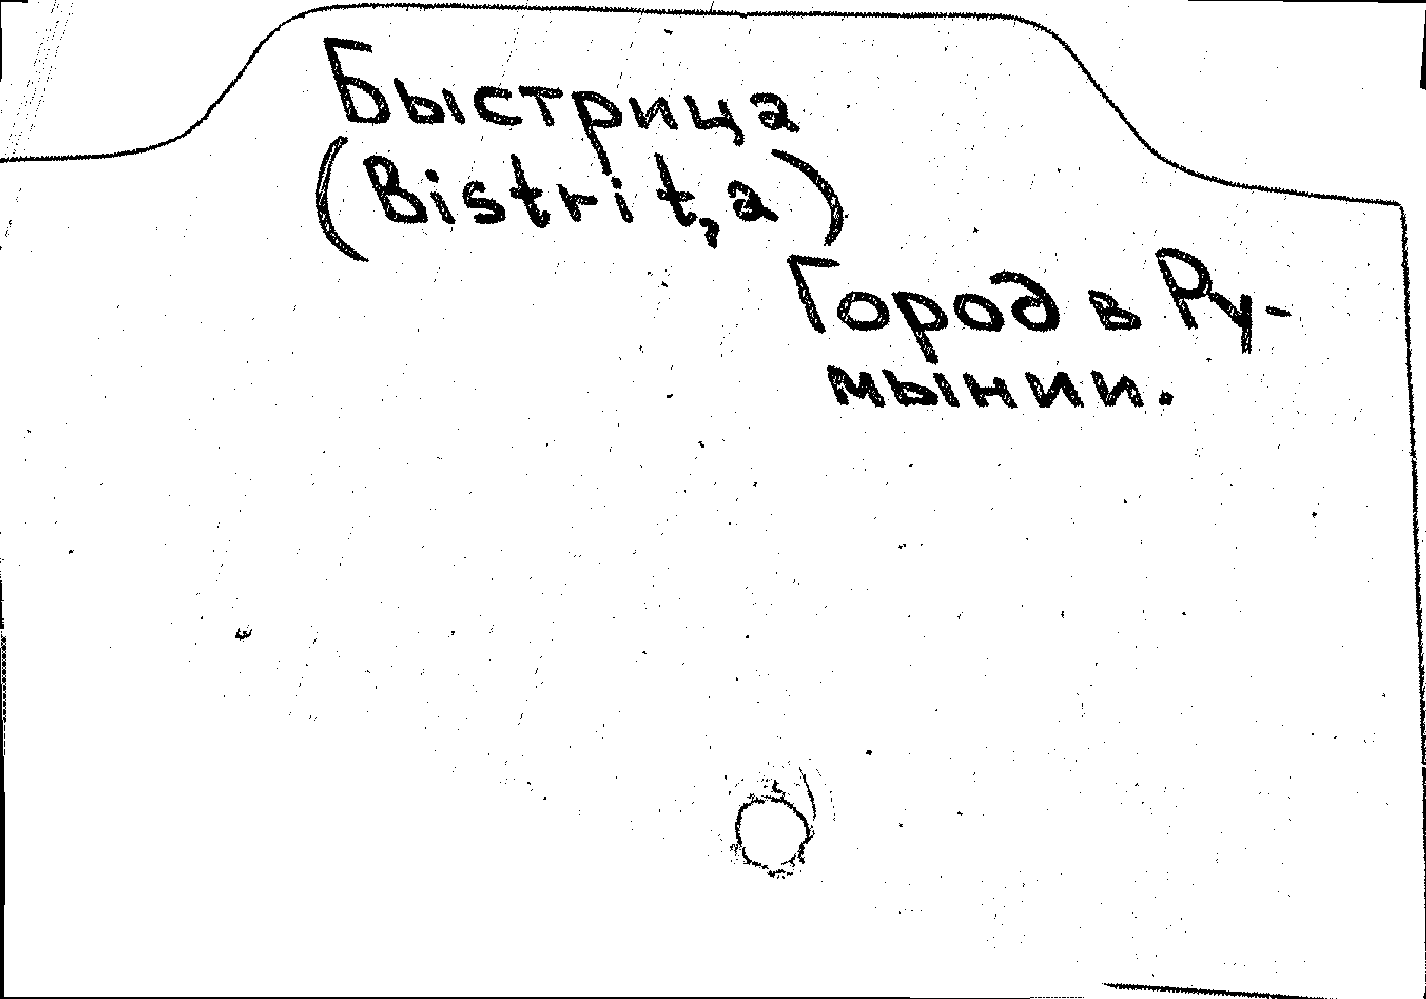 Быстрица
(Bistriţa)
Город в Ру-
мынии.